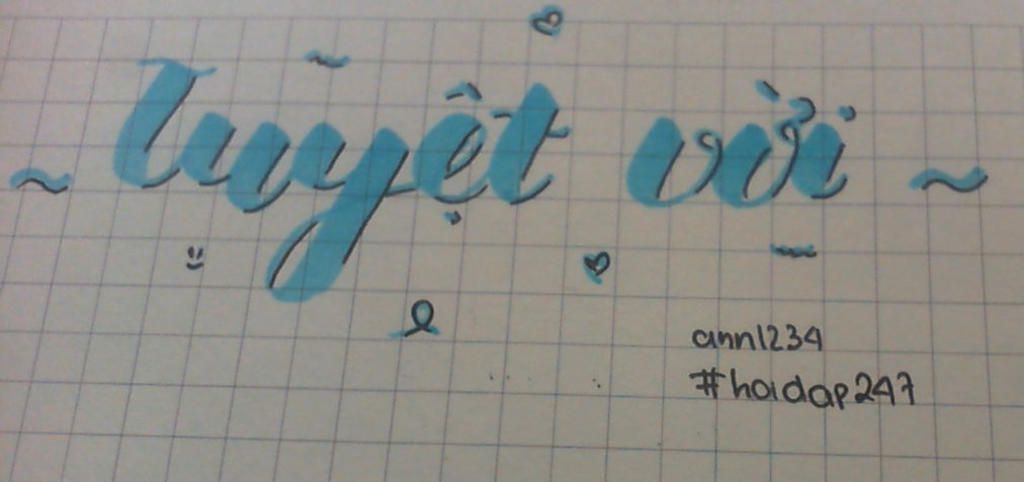 ~ Tuyệt vời ~
ann1234
#hoidap247